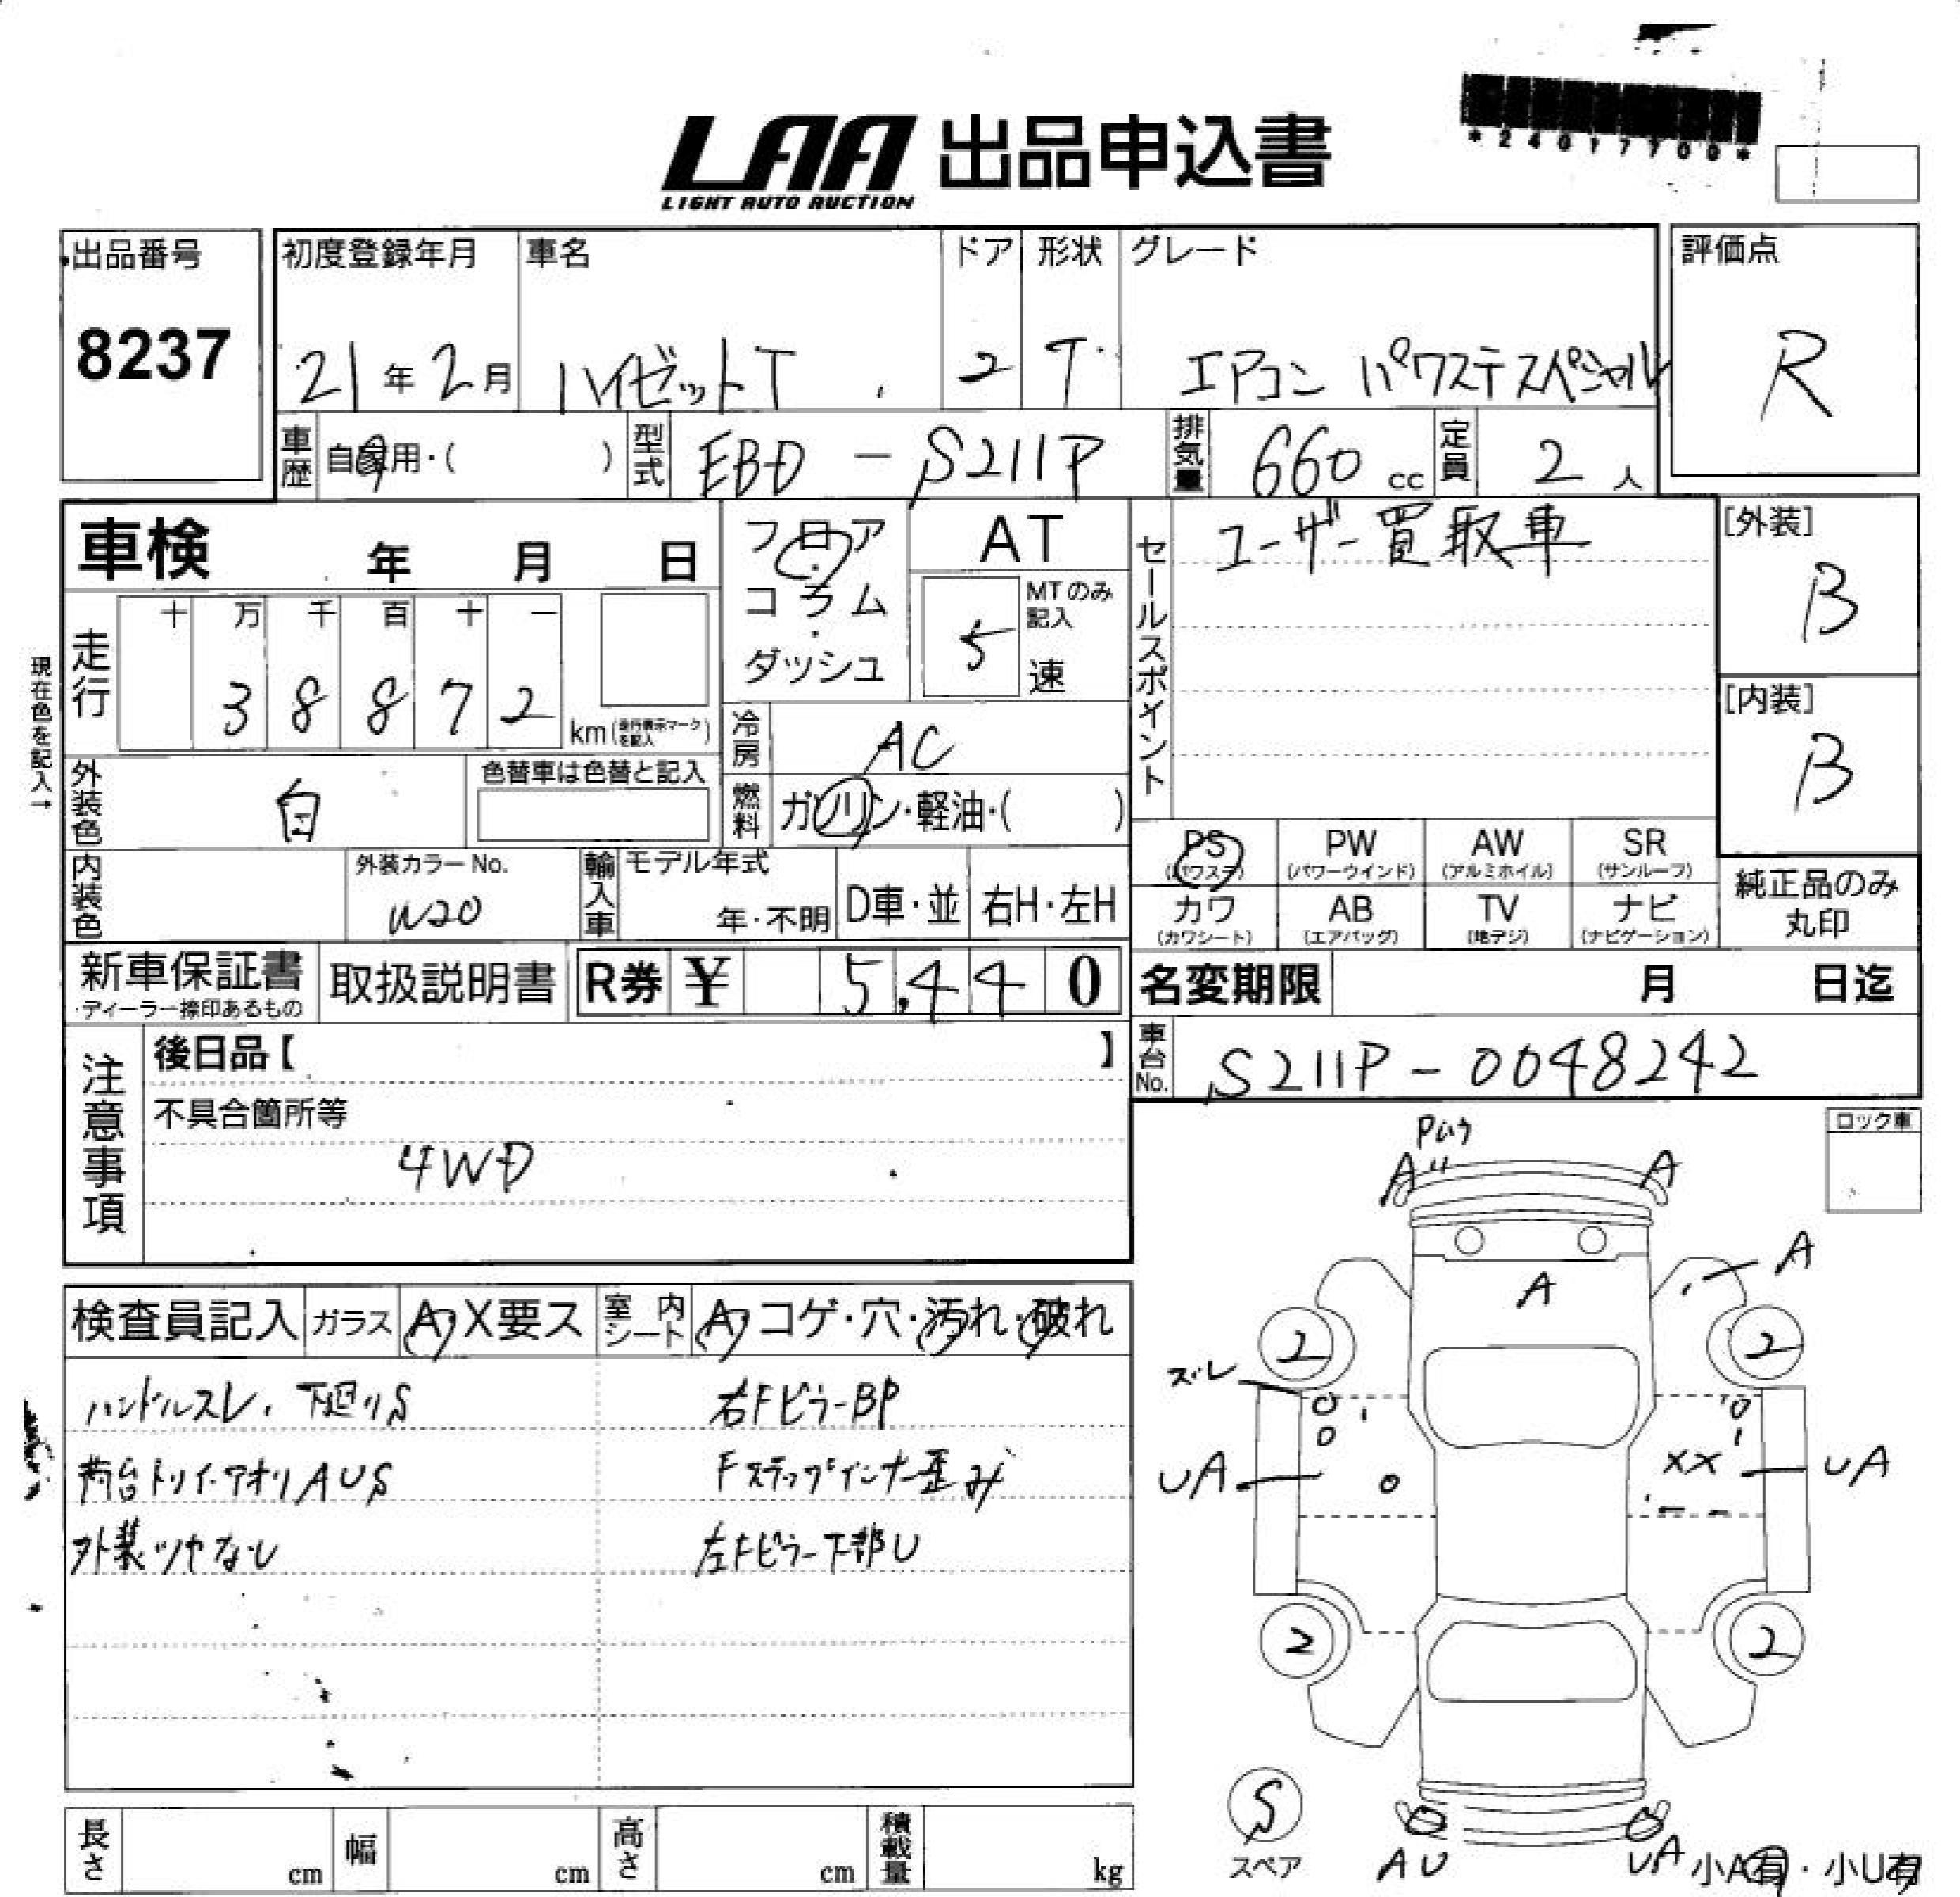 *24017709*
LAA 出品申込書
LIGHT AUTO AUCTION
出品番号 初度登録年月 車名 ドア 形状 グレード 評価点
8237 21年2月 ハイゼットT 2 T エアコン パワステスペシャル R
車歴 自家用・( ) 型式 EBD - S211P 排気量 660 cc 定員 2 人
車検 年 月 日
フロア・コラム・ダッシュ
AT
5 MTのみ記入 速
セールスポイント ユーザー買取車
[外装] B
現在色を記入→
走行 十 万 千 百 十 一
3 8 8 7 2 km (走行表示マークを記入)
冷房 AC
[内装] B
外装色 白 色替車は色替と記入
燃料 ガソリン・軽油・( )
PS (パワステ) PW (パワーウインド) AW (アルミホイル) SR (サンルーフ)
内装色 外装カラーNo. W20 輸入車 モデル年式 年・不明 D車・並 右H・左H
カワ (カワシート) AB (エアバッグ) TV (地デジ) ナビ (ナビゲーション)
純正品のみ丸印
新車保証書 取扱説明書 R券 ¥ 5,440
・ディーラー捺印あるもの
名変期限 月 日迄
注意事項 後日品【 】
車台No. S211P - 0048242
不具合箇所等
4WD
ロック車
検査員記入 ガラス A・X要ス 室内シート A・コゲ・穴・汚れ・破れ
ハンドルスレ. 下廻りS 右FピラーBP
荷台トリイ.アオリAUS Fステップインナー歪み
外装ツヤなし 左Fピラー下部U
A A
A
A
2 2
ズレ
UA XX UA
2 2
S
スペア
AU UA 小A有・小U有
長さ cm 幅 cm 高さ cm 積載量 kg